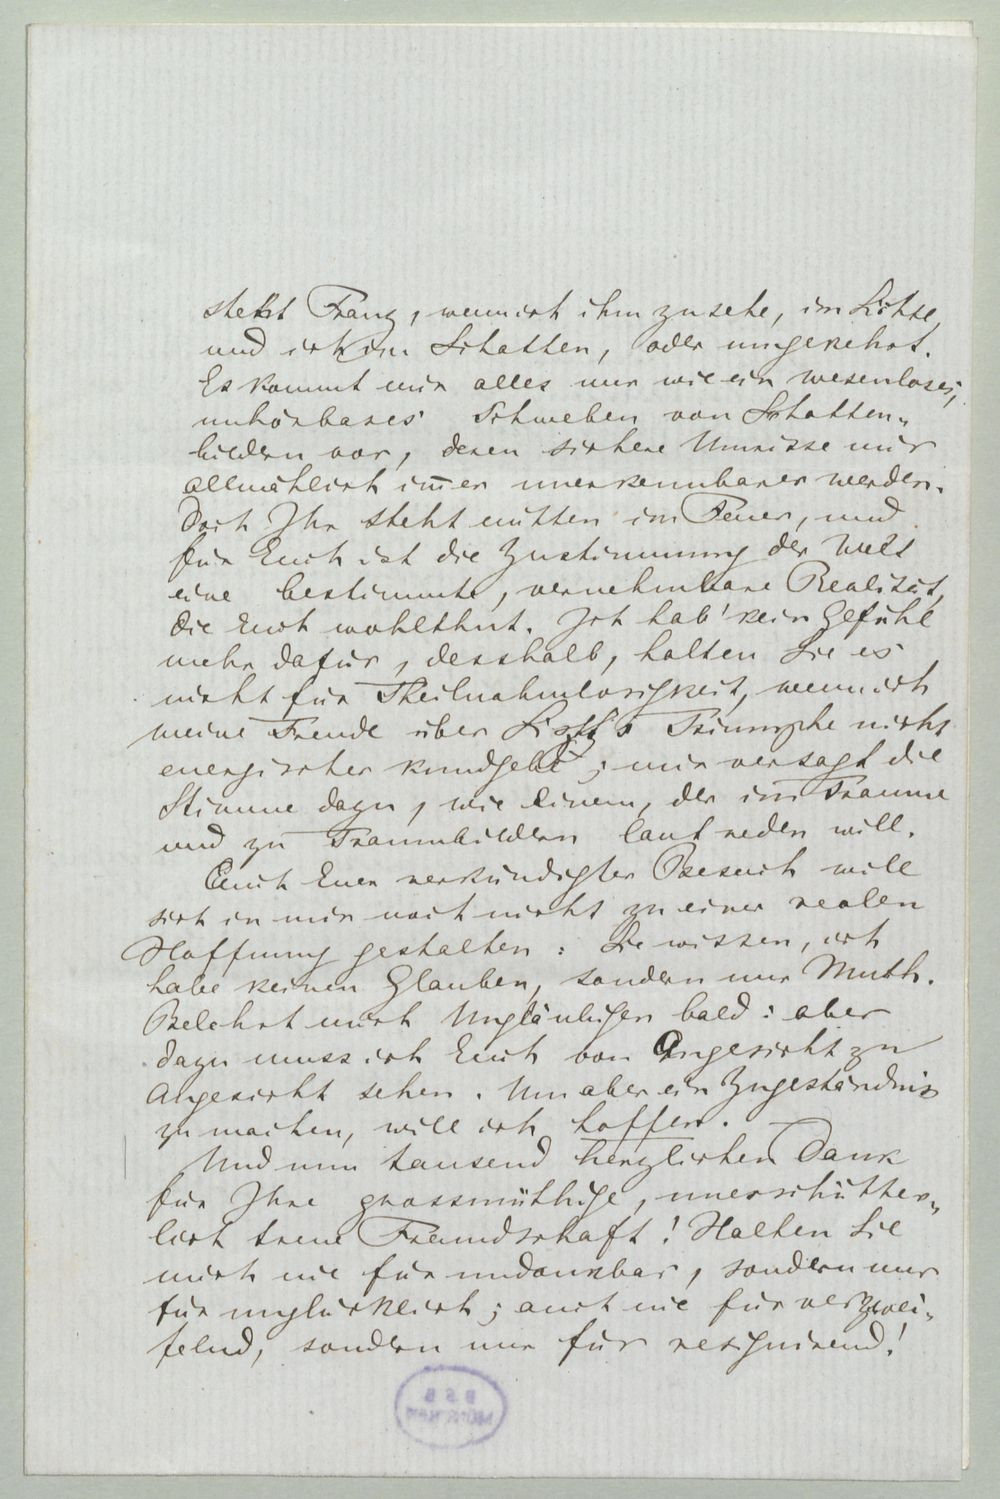 steht Franz, wenn ich ihm zusehe, im Lichte,
und ich im Schatten, oder umgekehrt.
Es kommt mir alles nur wie ein wesenloses,
unhörbares Schweben von Schatten„
bildern vor, deren sichere Umrisse mir
allmählich im̅er unerkennbarer werden.
Doch Ihr steht mitten im Feuer, und
für Euch ist die Zustimmung der Welt
eine bestimmte, vernehmbare Realität,
die Euch wohlthut. Ich hab' kein Gefühl
mehr dafür, desshalb, halten Sie es
nicht für Theilnahmlosigkeit, wenn ich
meine Freude über Liszt's Triumphe nicht
energischer kundgebe; mir versagt die
Stimme dazu, wie Einem, der im Traume
und zu Traumbildern laut reden will.
Auch Euer verkündigter Besuch will
sich in mir noch nicht zu einer realen
Hoffnung gestalten: Sie wissen, ich
habe keinen Glauben, sondern nur Muth.
Belehrt mich Ungläubigen bald: aber
dazu muss ich Euch von Angesicht zu
Angesicht sehen. Um aber ein Zugeständniss
zu machen, will ich hoffen. —
Und nun tausend herzlichen Dank
für Ihre grossmüthige, unerschütter„
lich treue Freundschaft! Halten Sie
mich nie für undankbar, sondern nur
für unglücklich; auch nie für verzwei„
felnd, sondern nur für resignirend!
BSB
MÜNCHEN